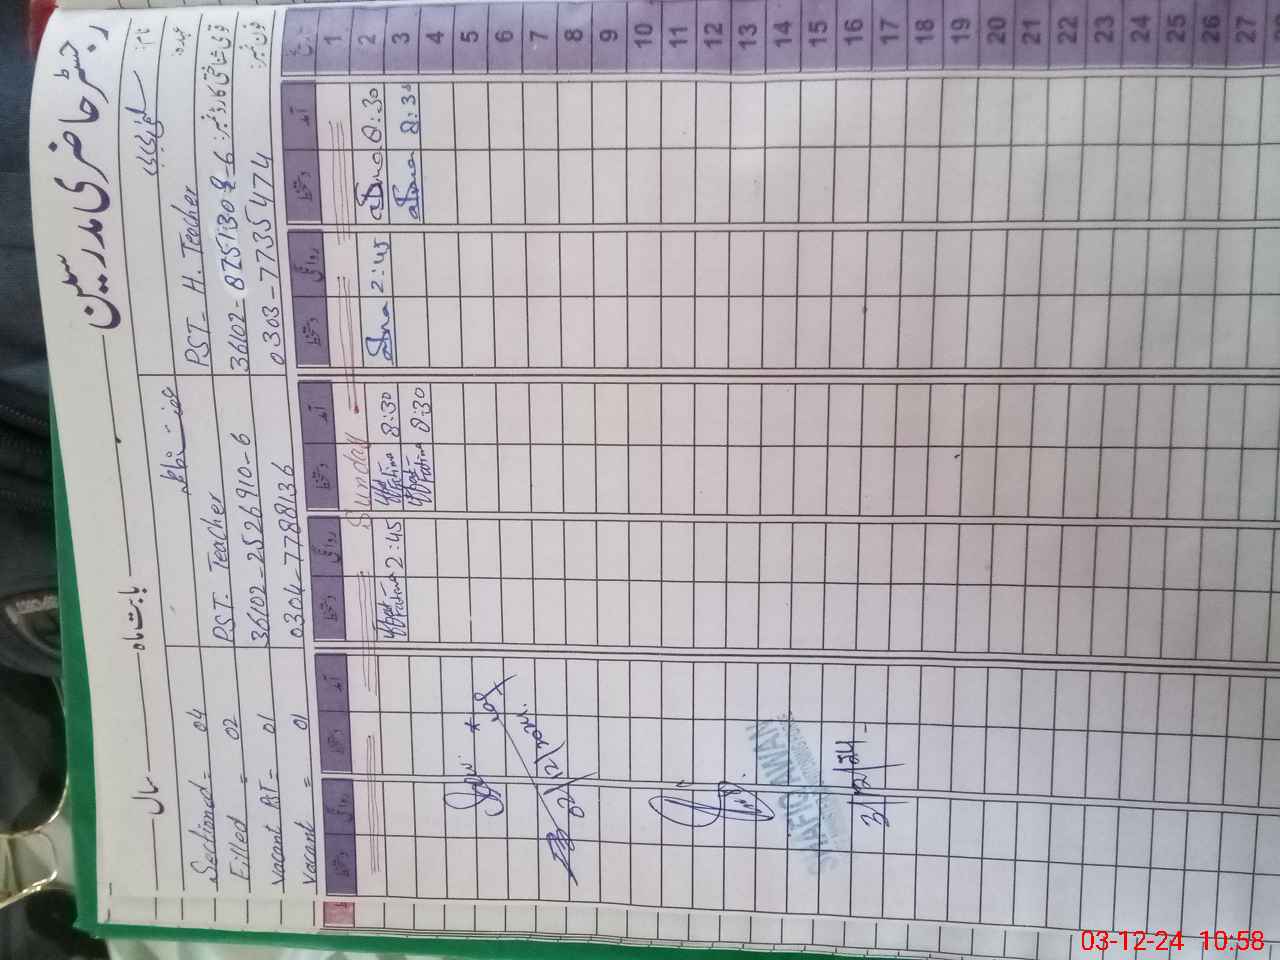 رجسٹر حاضری مدرسین
بابت ماہ
سال
نام:
عہدہ:
قومی شناختی کارڈ نمبر:
فون نمبر:
PST- H. Teacher
0303-7735474
PST. Teacher
36102-2526910-6
0304-7788136
Sectioned= 04
Filled = 02
Vacant AT= 01
Vacant = 01
تاریخ
آمد
دستخط
روانگی
دستخط
آمد
دستخط
روانگی
دستخط
آمد
دستخط
روانگی
دستخط
1
Sunday
2
8:30
2:45
Fatima 8:30
Fatima 2:45
3
8:30
Fatima 8:30
4
5
6
7
8
9
10
11
12
13
14
15
16
17
18
19
20
21
22
23
24
25
26
27
02/12/2024.
3/12/24
03-12-24 10:58